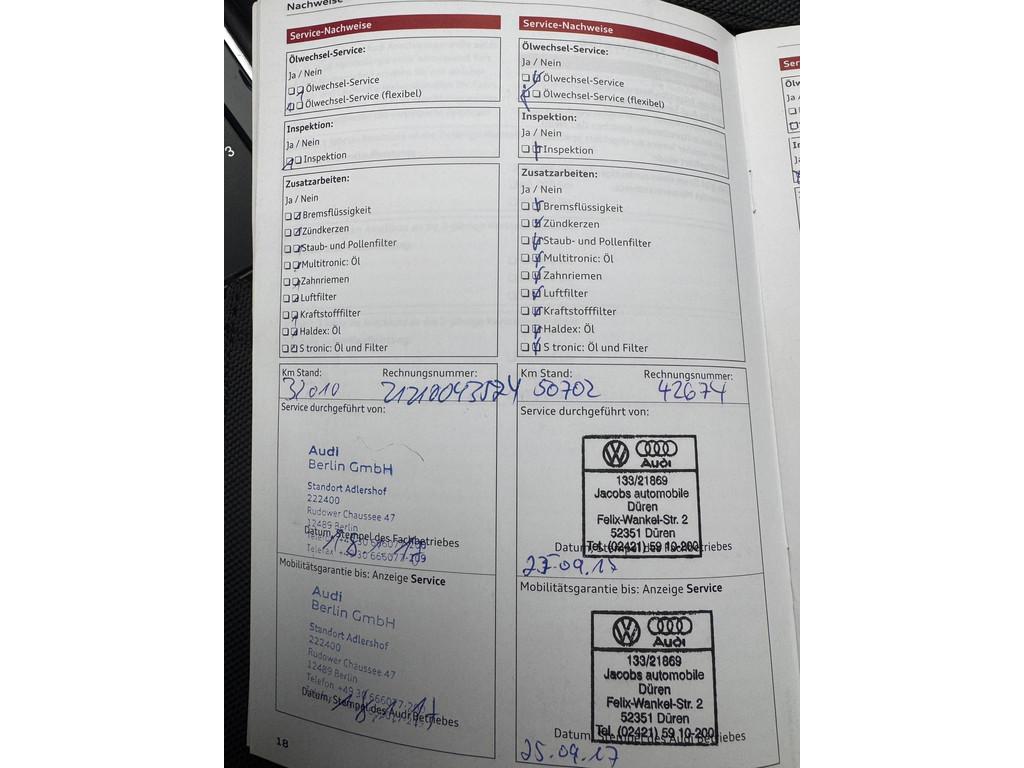 Nachweise
Service-Nachweise
Ölwechsel-Service:
Ja / Nein
Ölwechsel-Service
Ölwechsel-Service (flexibel)
Inspektion:
Ja / Nein
Inspektion
Zusatzarbeiten:
Ja / Nein
Bremsflüssigkeit
Zündkerzen
Staub- und Pollenfilter
Multitronic: Öl
Zahnriemen
Luftfilter
Kraftstofffilter
Haldex: Öl
S tronic: Öl und Filter
Km Stand: Rechnungsnummer:
Service durchgeführt von:
Audi
Berlin GmbH
Standort Adlershof
222400
Rudower Chaussee 47
12489 Berlin
Datum, Stempel des Fachbetriebes
Telefax +49 30 666077-209
Mobilitätsgarantie bis: Anzeige Service
Audi
Berlin GmbH
Standort Adlershof
222400
Rudower Chaussee 47
12489 Berlin
Telefon +49 30 666077-200
Datum, Stempel des Audi Betriebes
18
Service-Nachweise
Ölwechsel-Service:
Ja / Nein
Ölwechsel-Service
Ölwechsel-Service (flexibel)
Inspektion:
Ja / Nein
Inspektion
Zusatzarbeiten:
Ja / Nein
Bremsflüssigkeit
Zündkerzen
Staub- und Pollenfilter
Multitronic: Öl
Zahnriemen
Luftfilter
Kraftstofffilter
Haldex: Öl
S tronic: Öl und Filter
Km Stand: Rechnungsnummer:
50702 42674
Service durchgeführt von:
Audi
133/21869
Jacobs automobile
Düren
Felix-Wankel-Str. 2
52351 Düren
Tel. (02421) 59 10-200
Datum, Stempel des Fachbetriebes
Mobilitätsgarantie bis: Anzeige Service
Audi
133/21869
Jacobs automobile
Düren
Felix-Wankel-Str. 2
52351 Düren
Tel. (02421) 59 10-200
Datum, Stempel des Audi Betriebes
25.09.17
3